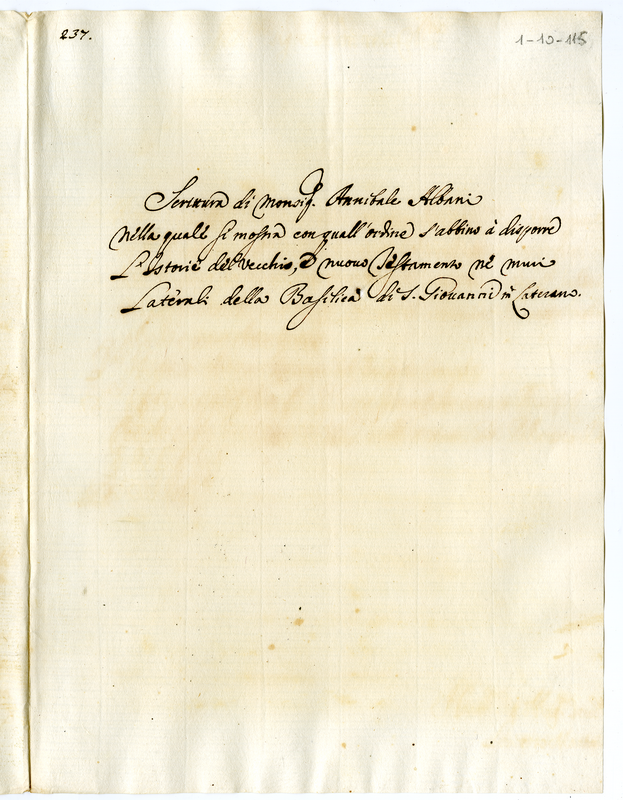 237.
1-10-115
Scrittura di Monsig. Annibale Albani
Nella quale si mostra con quall'ordine s'abbino à disporre
L'Istorie del Vecchio, e nuovo Testamento nè muri
Laterali della Basilica di S. Giovanni in Laterano.